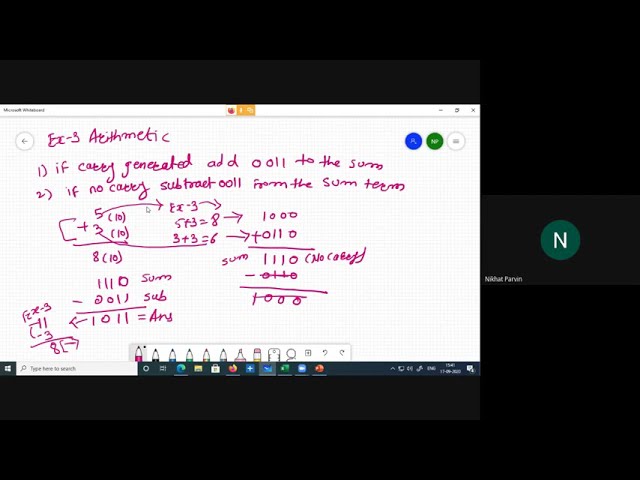 Microsoft Whiteboard
Ex-3 Arithmetic
1) if carry generated add 0011 to the sum
2) if no carry subtract 0011 from the sum terms
5(10) Ex-3
+ 3(10)
8(10)
5+3=8 → 1000
3+3=6 → +0110
sum 1110 (No carry)
- 0110
1000
1110 sum
- 0011 sub
1011 = Ans
Ex-3
11
-3
8
NP
N
Nikhat Parvin
Type here to search
ENG
15:41
17-09-2020